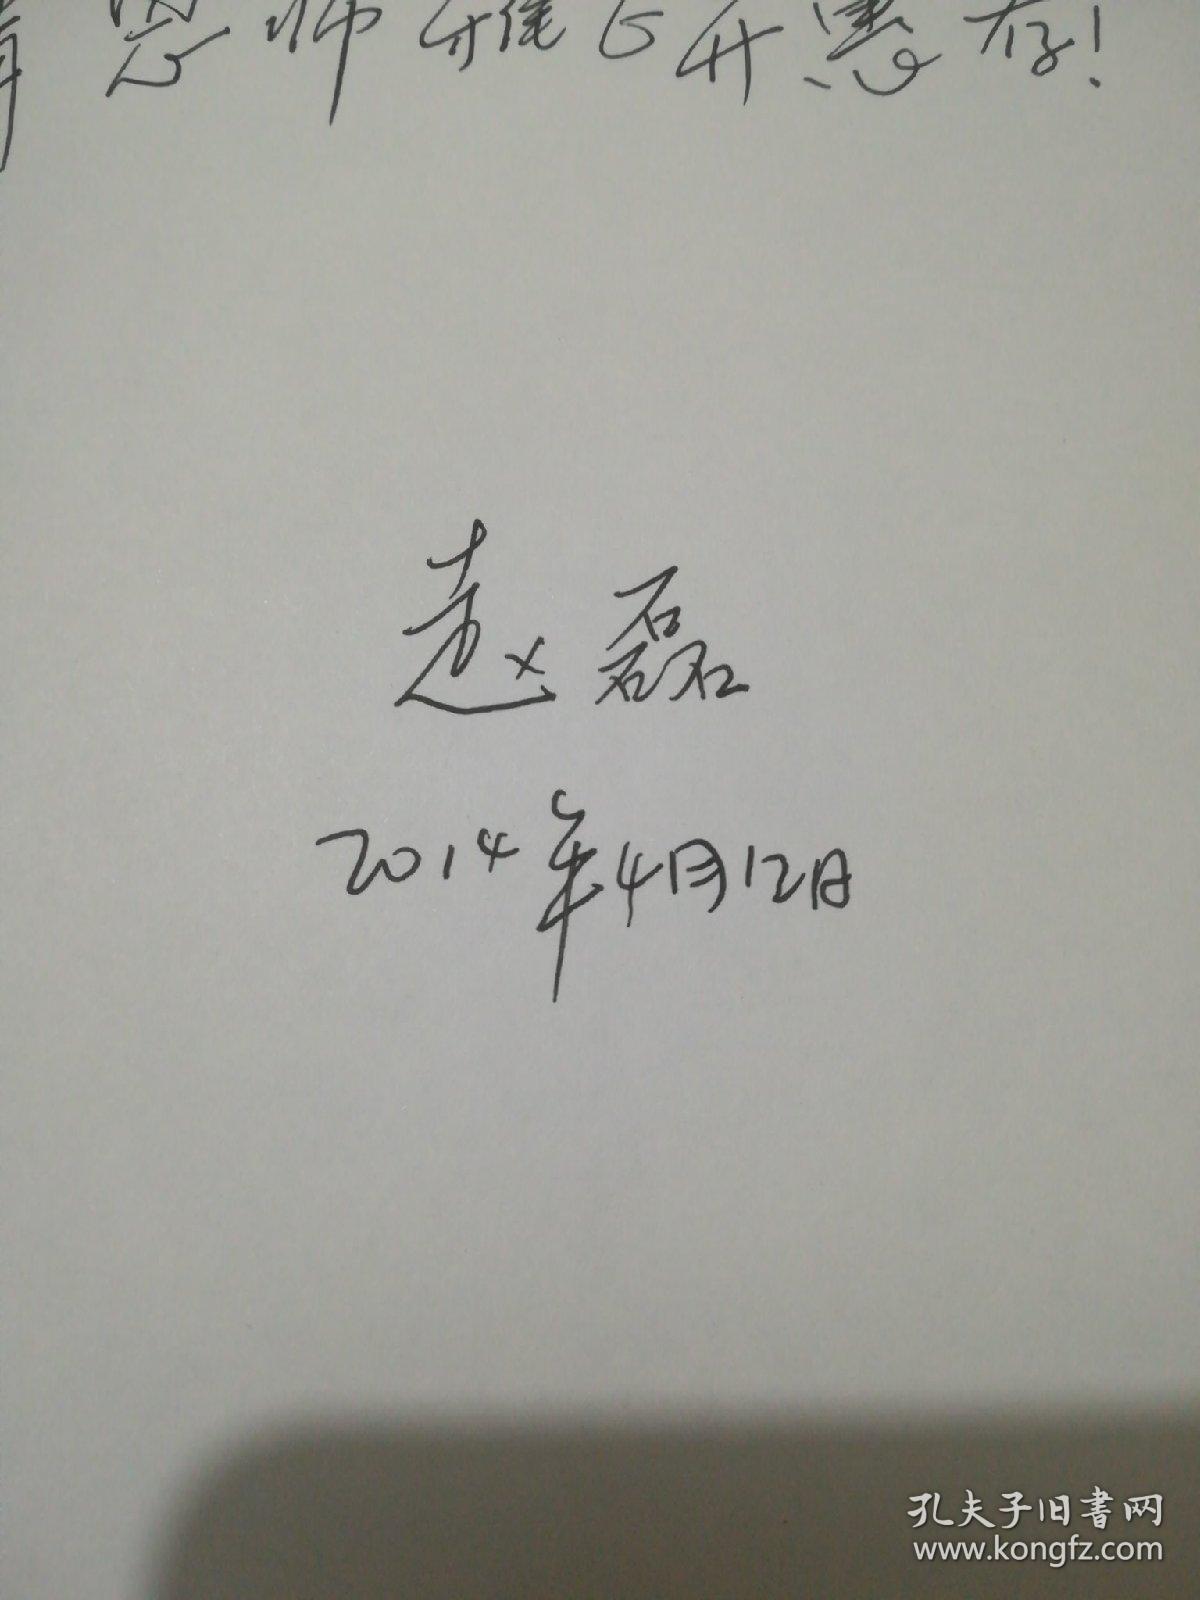 请恩师惠存!
赵磊
2014年4月12日
孔夫子旧书网
www.kongfz.com